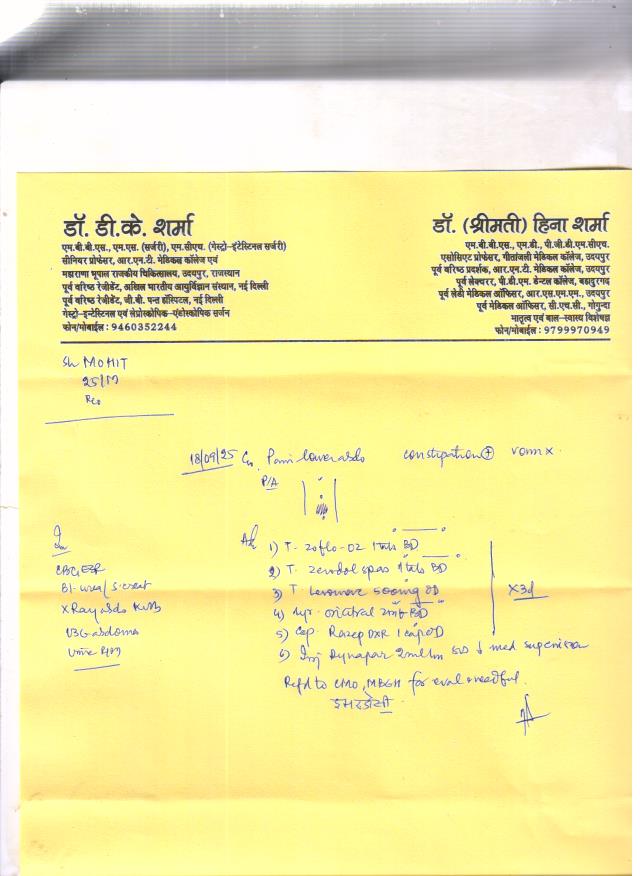 डॉ. डी.के. शर्मा
एम.बी.बी.एस., एम.एस. (सर्जरी), एम.सीएच. (गेस्ट्रो-इंटेस्टिनल सर्जरी)
सीनियर प्रोफेसर, आर.एन.टी. मेडिकल कॉलेज एवं
महाराणा भूपाल राजकीय चिकित्सालय, उदयपुर, राजस्थान
पूर्व वरिष्ठ रेजीडेंट, अखिल भारतीय आयुर्विज्ञान संस्थान, नई दिल्ली
पूर्व वरिष्ठ रेजीडेंट, जी.बी. पन्त हॉस्पिटल, नई दिल्ली
गेस्ट्रो-इन्टेस्टिनल एवं लेप्रोस्कोपिक-एंडोस्कोपिक सर्जन
फोन/मोबाईल : 9460352244
डॉ. (श्रीमती) हिना शर्मा
एम.बी.बी.एस., एम.डी., पी.जी.डी.एम.सीएच.
एसोसिएट प्रोफेसर, गीतांजली मेडिकल कॉलेज, उदयपुर
पूर्व वरिष्ठ प्रदर्शक, आर.एन.टी. मेडिकल कॉलेज, उदयपुर
पूर्व लेक्चरर, पी.डी.एम. डेन्टल कॉलेज, बहादुरगढ़
पूर्व लेडी मेडिकल ऑफिसर, आर.एस.एम.एम., उदयपुर
पूर्व मेडिकल ऑफिसर, सी.एच.सी., गोगुन्दा
मातृत्व एवं बाल-स्वास्थ्य विशेषज्ञ
फोन/मोबाईल : 9799970949
Sh MOHIT
25/M
18/09/25 Pain lower abdo constipation ⊕
P/A
Adv 1) T. Zoflo-OZ 1 tab BD
2) T. Zerodol spas 1 tab BD
3) T. 500mg OD
4) Syr. BD
5) Cap. Razep DXR 1 cap OD
X3d
6) Inj Dynapar 2ml Im ↓ med supervision
Refd to CMO, MBGH for eval & needful.
Inv
CBC/ESR
Bl-urea/S.creat
X Ray abdo KUB
USG abdomen
Urine R/M